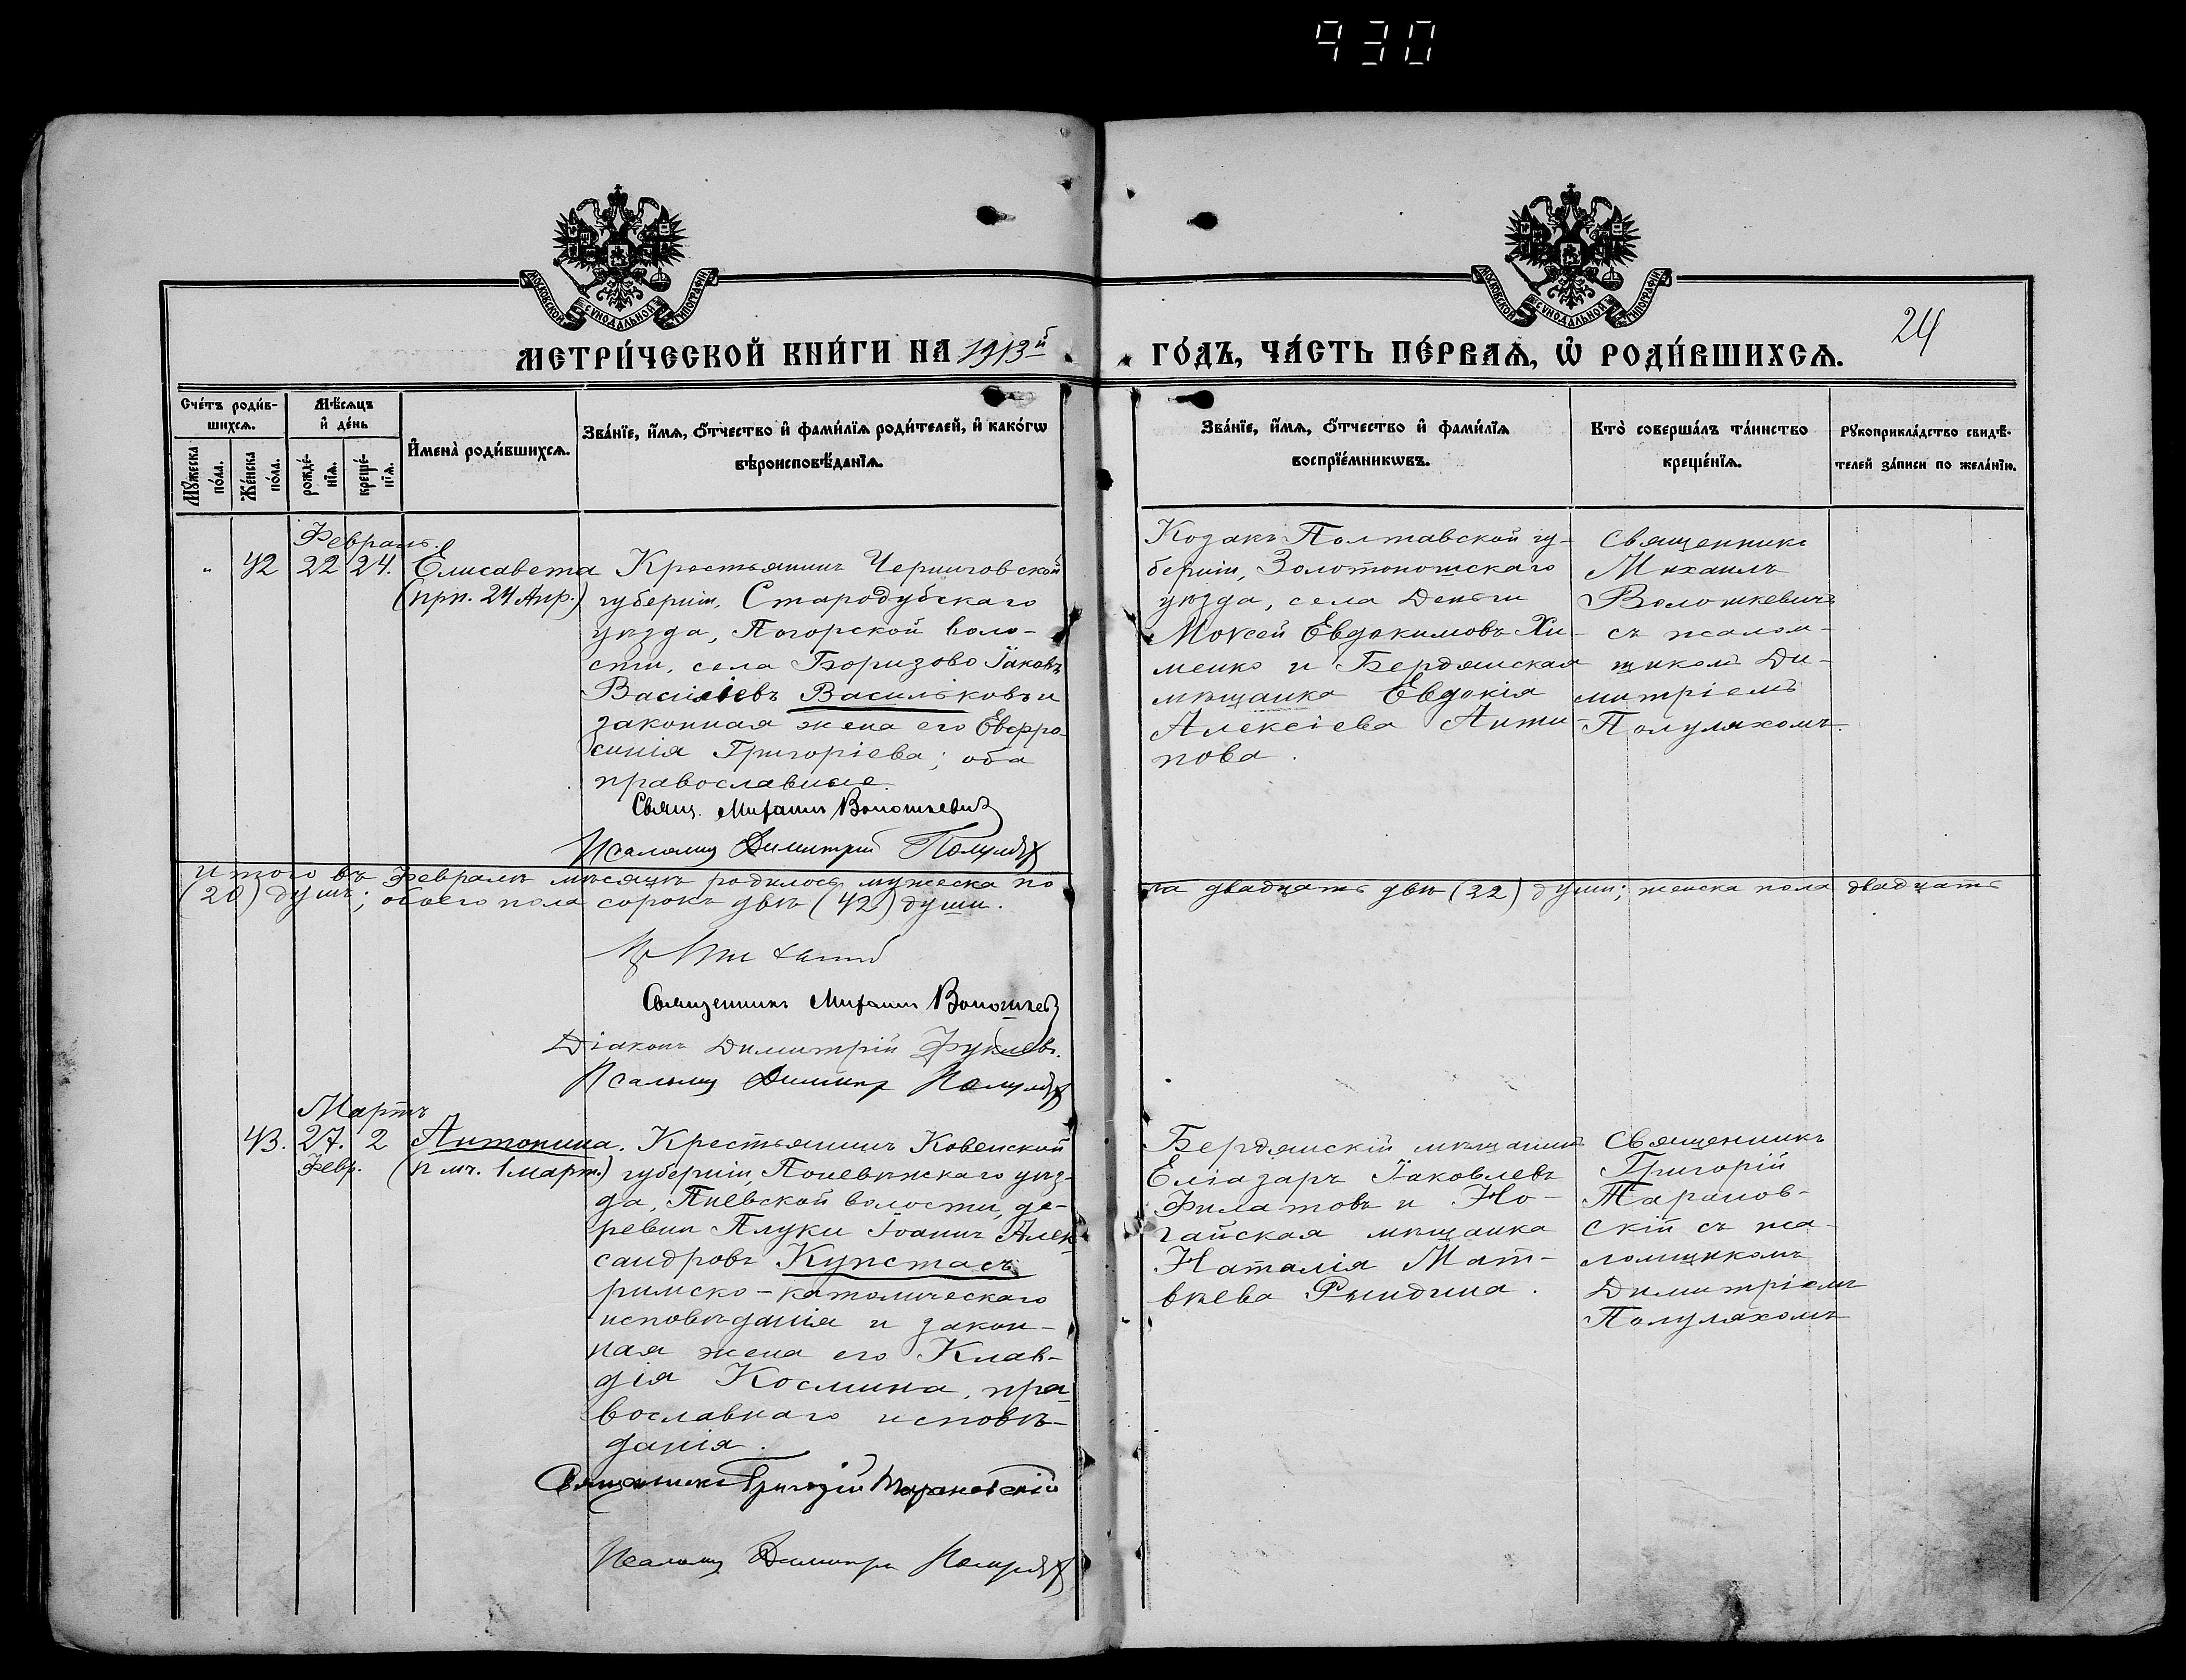 930
МОСКОВСКОЙ СѴНОДАЛЬНОЙ ТИПОГРАФІИ
МОСКОВСКОЙ СѴНОДАЛЬНОЙ ТИПОГРАФІИ
24
МЕТРИ́ЧЕСКОЙ КНИ́ГИ НА 1913й
ГО́ДЪ, ЧА́СТЬ ПЕ́РВАѦ, Ѡ҆ РОДИ́ВШИХСѦ.
Сче́тъ роди́в-
шихсѧ.
Мѣ́сѧцъ
и҆ де́нь
Мꙋ́жеска
по́ла.
Же́нска
по́ла.
рожде́-
нїѧ.
креще́-
нїѧ.
И҆мена̀ роди́вшихсѧ.
Зва́нїе, и҆́мѧ, ѻ҆́тчество и҆ фами́лїѧ роди́телей, и҆ како́гѡ
вѣроисповѣ́данїѧ.
Зва́нїе, и҆́мѧ, ѻ҆́тчество и҆ фами́лїѧ
воспрїе́мникѡвъ.
Кто̀ соверша́лъ та́инство
креще́нїѧ.
Рꙋкоприкла́дство свидѣ́-
телей за́писи по жела́нїю.
Февраль.
" 42 22 24. Елисавета
(прп. 24 Апр.)
Крестьянинъ Черниговской
губерніи, Стародубскаго
уѣзда, Погорской воло-
сти, села Борщово Іаковъ
Василіевъ Васильковъ и
законная жена его Евфро-
синія Григоріева; оба
православные.
Свящ. Михаилъ Волошкевичъ
Псаломщ. Димитрий Полулях
Козакъ Полтавской гу-
берніи, Золотоношскаго
уѣзда, села Деньги
Моѵсей Евдокимовъ Хи-
менко и Бердянская
мѣщанка Евдокія
Алексіева Анти-
пова.
Священникъ
Михаилъ
Волошкевичъ
съ псалом-
щикомъ Ди-
митріемъ
Полуляхомъ.
Итого въ Февралѣ мѣсяцѣ родилось мужеска по
ла двадцать двѣ (22) души; женска пола двадцать
(20) душъ; обоего пола сорокъ двѣ (42) души.
Священникъ Михаилъ Волошкев
Діаконъ Димитрій
Псаломщ Димитр Полулях
Мартъ
43. 27. 2 Антонина.
Февр. (п мч. 1 март.)
Крестьянинъ Ковенской
губерніи, Поневѣжскаго уѣз-
да, Пневской волости, де-
ревни Плуки Іоаннъ Алек-
сандровъ Купстасъ
римско-католическаго
исповѣданія и закон-
ная жена его Клав-
дія Космина, пра
вославнаго исповѣ-
данія.
Священникъ Григорій Тарановскій
Псаломщ Димитр Полулях
Бердянскій мѣщанинъ
Еліазаръ Іаковлевъ
Филатовъ и Но-
гайская мѣщанка
Наталія Мат-
вѣева Рындина.
Священникъ
Григорій
Таранов-
скій съ пса-
ломщикомъ
Димитріемъ
Полуляхомъ